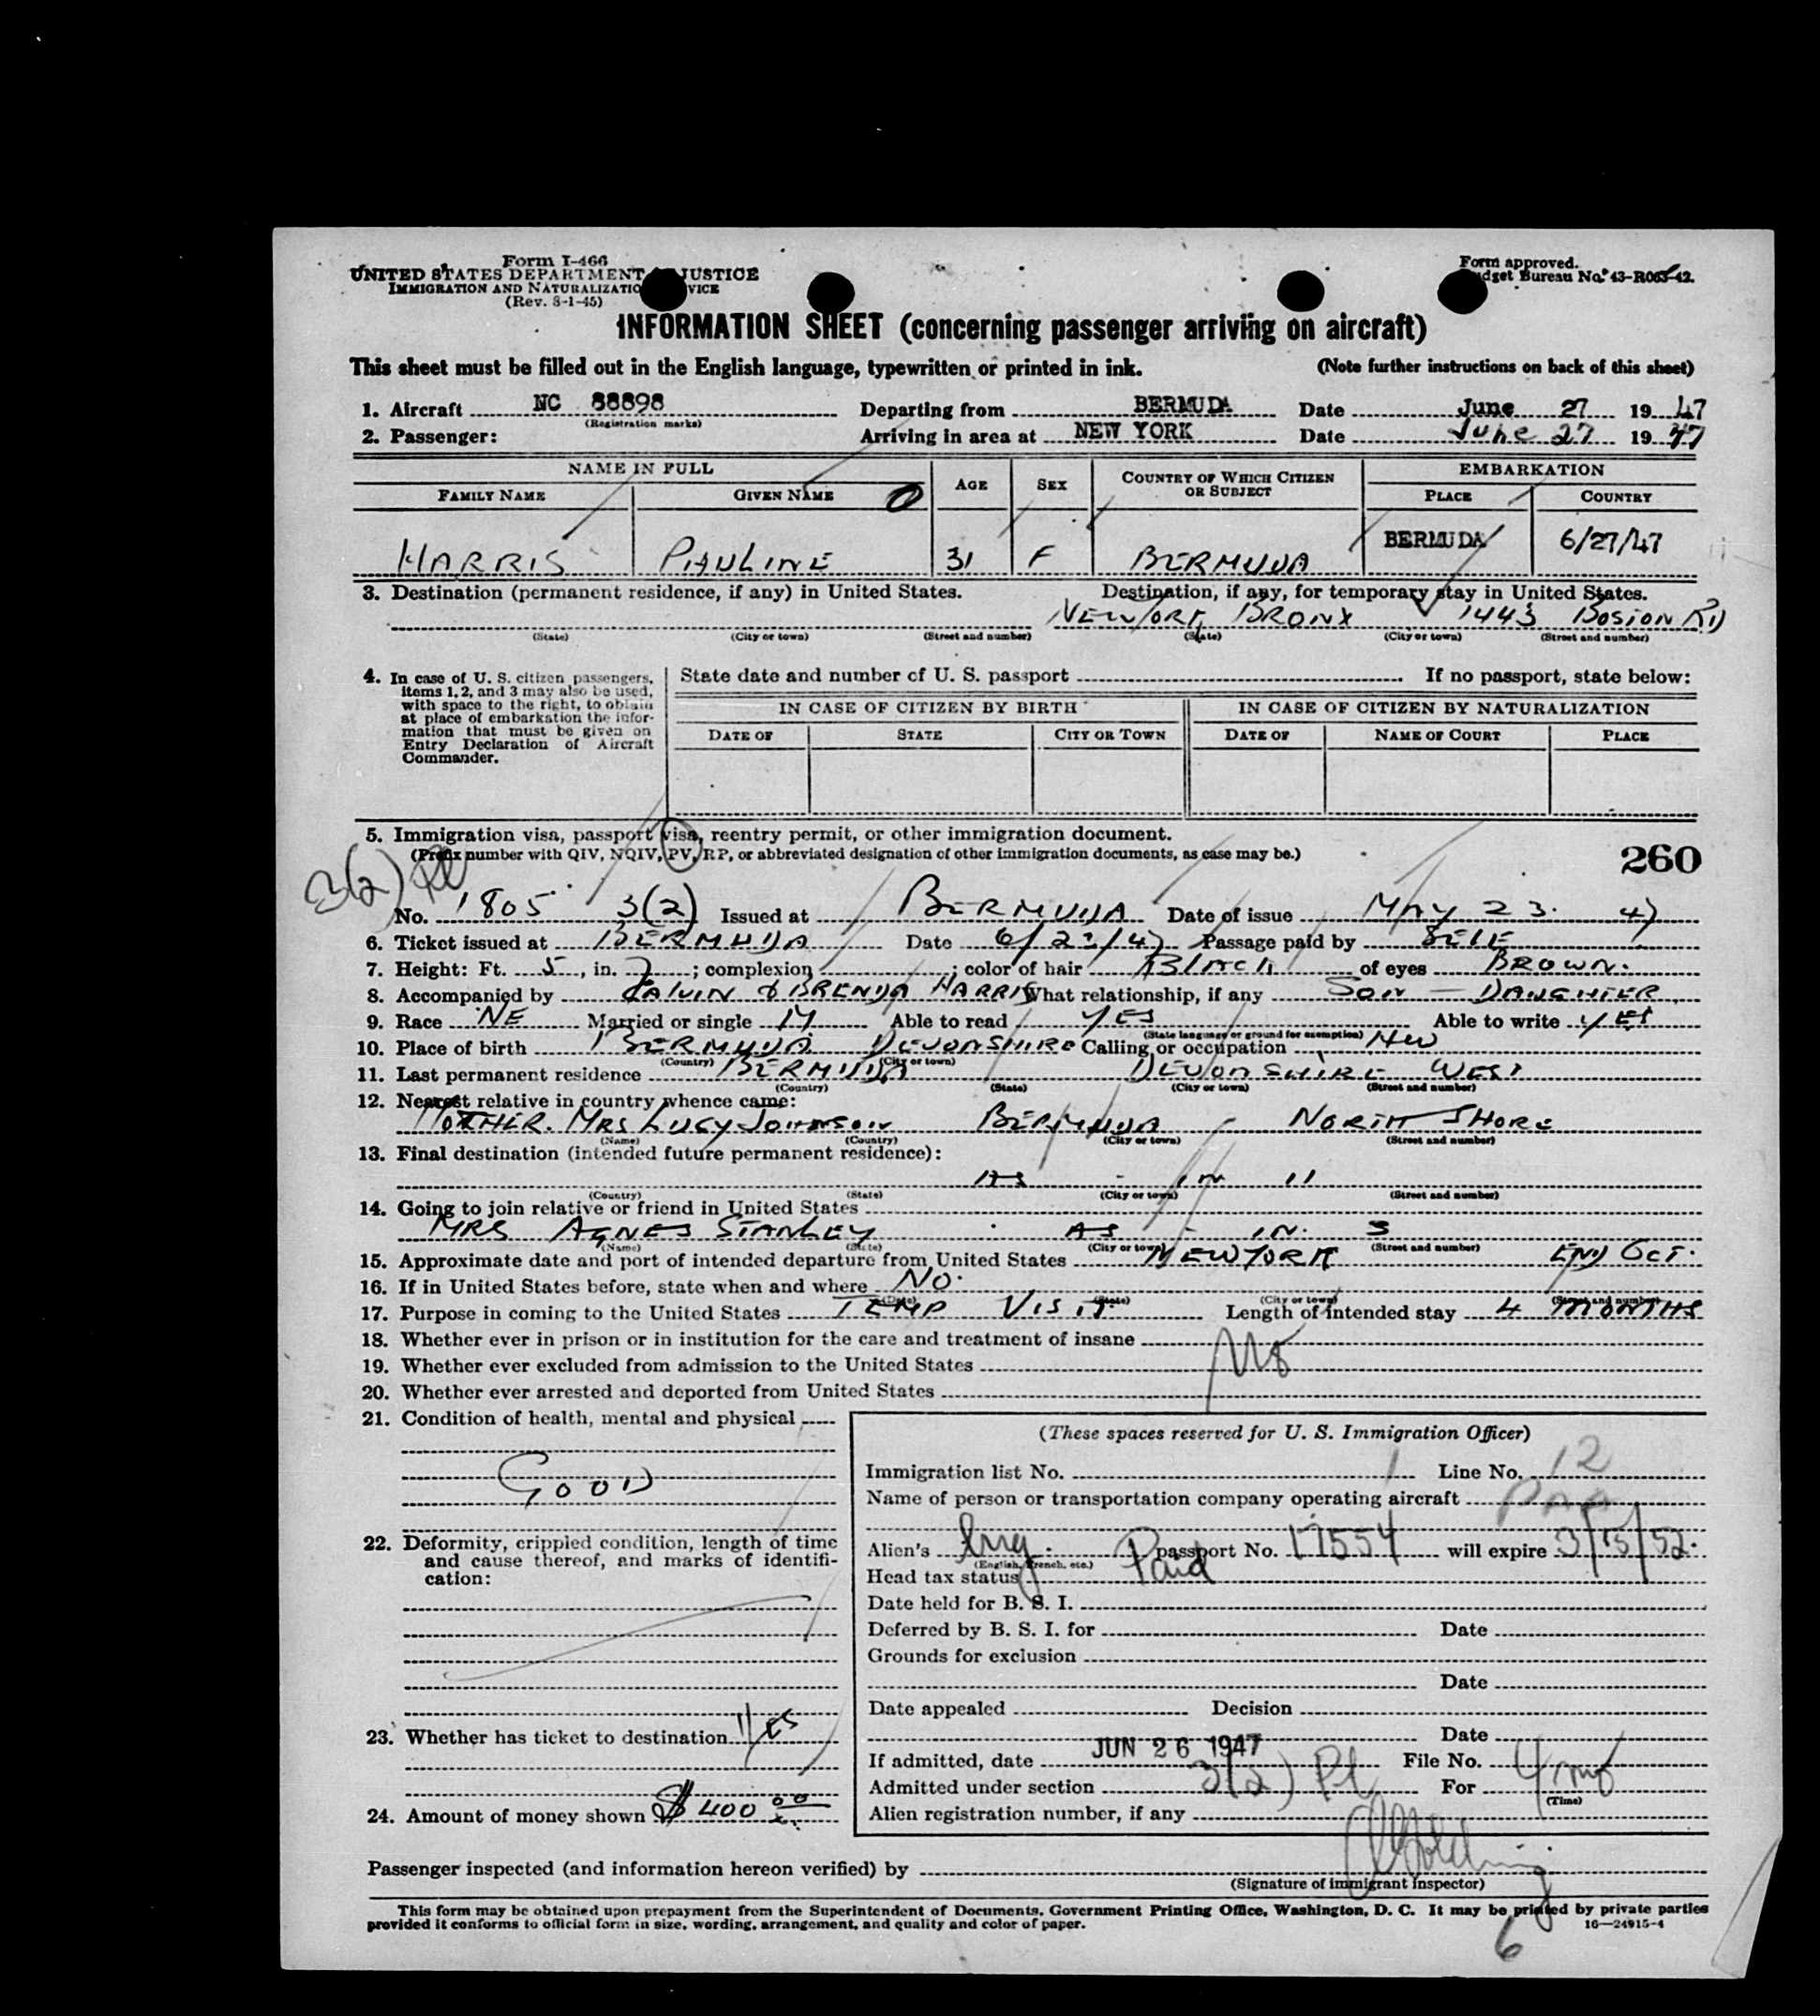 Form I-466
UNITED STATES DEPARTMENT JUSTICE
IMMIGRATION AND NATURALIZATIO VICE
(Rev. 8-1-45)
Form approved.
dget Bureau No. 43-R063-42.
INFORMATION SHEET (concerning passenger arriving on aircraft)
This sheet must be filled out in the English language, typewritten or printed in ink. (Note further instructions on back of this sheet)
1. Aircraft NC 88898 Departing from BERMUDA Date June 27 1947
(Registration marks)
2. Passenger: Arriving in area at NEW YORK Date June 27 1947
NAME IN FULL AGE SEX COUNTRY OF WHICH CITIZEN OR SUBJECT EMBARKATION
FAMILY NAME GIVEN NAME PLACE COUNTRY
HARRIS PAULINE 31 F BERMUDA BERMUDA 6/27/47
3. Destination (permanent residence, if any) in United States. Destination, if any, for temporary stay in United States.
NEW YORK BRONX 1443 BOSTON RD
(State) (City or town) (Street and number) (State) (City or town) (Street and number)
4. In case of U. S. citizen passengers, items 1, 2, and 3 may also be used, with space to the right, to obtain at place of embarkation the information that must be given on Entry Declaration of Aircraft Commander.
State date and number of U. S. passport If no passport, state below:
IN CASE OF CITIZEN BY BIRTH IN CASE OF CITIZEN BY NATURALIZATION
DATE OF STATE CITY OR TOWN DATE OF NAME OF COURT PLACE
5. Immigration visa, passport visa, reentry permit, or other immigration document.
(Prefix number with QIV, NQIV, PV, RP, or abbreviated designation of other immigration documents, as case may be.)
260
3(2) Pl
No. 1805 3(2) Issued at BERMUDA Date of issue MAY 23. 47
6. Ticket issued at BERMUDA Date 6/23/47 Passage paid by SELF
7. Height: Ft. 5, in. 7; complexion ; color of hair BLACK of eyes BROWN.
8. Accompanied by CALVIN & BRENDA HARRIS What relationship, if any SON — DAUGHTER
9. Race NE Married or single M Able to read YES Able to write YES
(State language or ground for exemption)
10. Place of birth BERMUDA DEVONSHIRE Calling or occupation HW
(Country) (City or town)
11. Last permanent residence BERMUDA DEVONSHIRE WEST
(Country) (State) (City or town) (Street and number)
12. Nearest relative in country whence came:
MOTHER. MRS LUCY JOHNSON BERMUDA - NORTH SHORE
(Name) (Country) (City or town) (Street and number)
13. Final destination (intended future permanent residence):
AS - IN 11
(Country) (State) (City or town) (Street and number)
14. Going to join relative or friend in United States
MRS AGNES STANLEY AS - IN. 3
(Name) (State) (City or town) (Street and number)
15. Approximate date and port of intended departure from United States NEW YORK END OCT.
16. If in United States before, state when and where NO.
(Date) (State) (City or town) (Street and number)
17. Purpose in coming to the United States TEMP VISIT Length of intended stay 4 MONTHS
18. Whether ever in prison or in institution for the care and treatment of insane
19. Whether ever excluded from admission to the United States No
20. Whether ever arrested and deported from United States
21. Condition of health, mental and physical
GOOD
22. Deformity, crippled condition, length of time and cause thereof, and marks of identification:
23. Whether has ticket to destination Yes
24. Amount of money shown $400 00
(These spaces reserved for U. S. Immigration Officer)
Immigration list No. 1 Line No. 12
Name of person or transportation company operating aircraft PAA
Alien's passport No. 17554 will expire 3/15/52.
(English, French, etc.)
Head tax status Paid
Date held for B. S. I.
Deferred by B. S. I. for Date
Grounds for exclusion
Date
Date appealed Decision
Date
If admitted, date JUN 26 1947 File No.
Admitted under section 3(2) Pl For 4 mo
(Time)
Alien registration number, if any
Passenger inspected (and information hereon verified) by
(Signature of immigrant inspector)
This form may be obtained upon prepayment from the Superintendent of Documents, Government Printing Office, Washington, D. C. It may be printed by private parties
provided it conforms to official form in size, wording, arrangement, and quality and color of paper. 16—24915-4
6